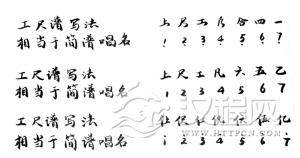 工尺谱写法 上 尺 工 凡 合 四 一
相当于简谱唱名 1 2 3 4 5 6 7
工尺谱写法 上 尺 工 凡 六 五 乙
相当于简谱唱名 1 2 3 4 5 6 7
工尺谱写法 仩 伬 仜 伍 亿
相当于简谱唱名 1 2 3 4 5 6 7
汉程网
HTTPCN.COM